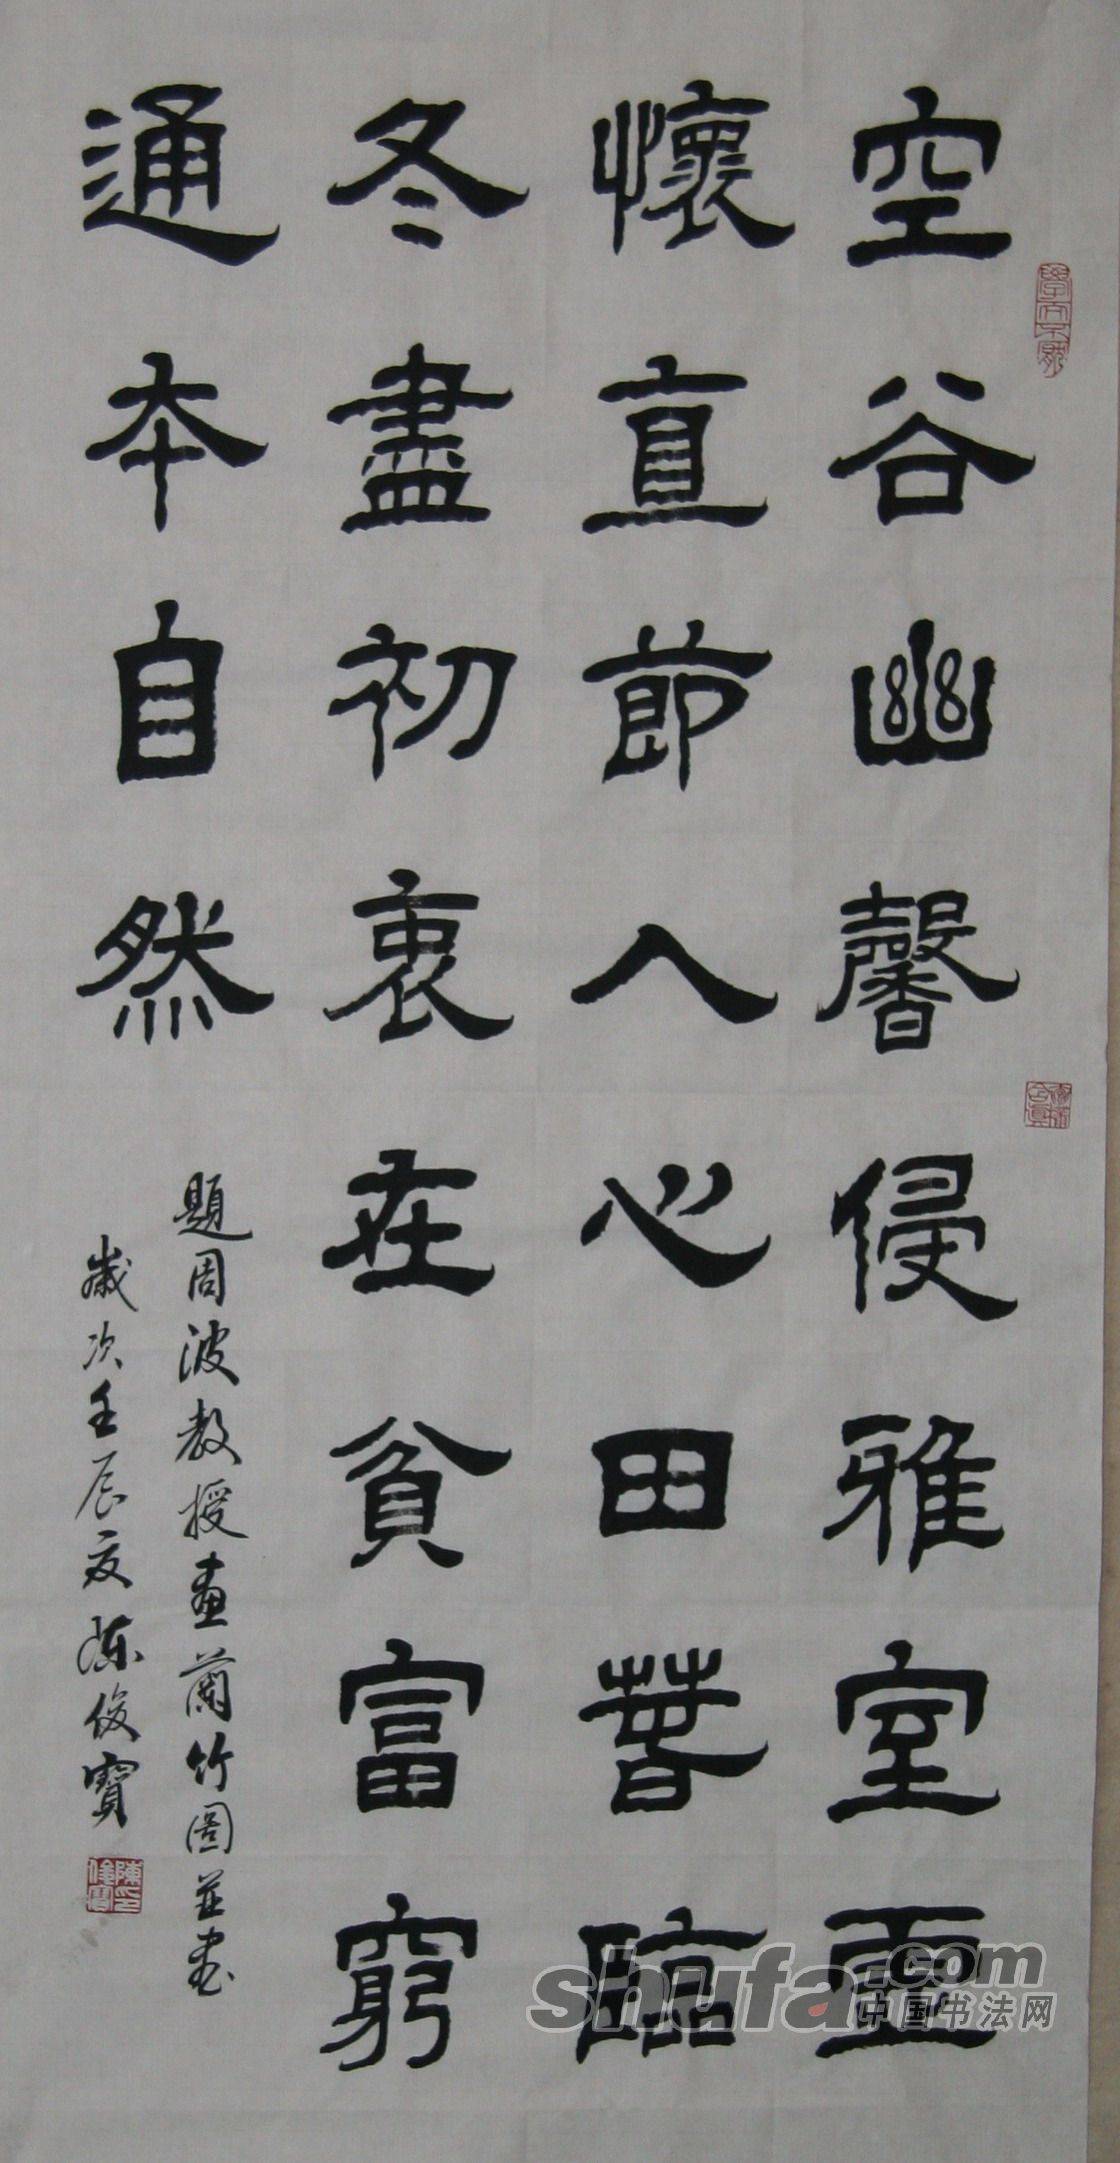 空谷幽馨侵雅室靈
懷直節入心田暮臨
冬盡初衷在貧富窮
通本自然
題周波教授畫蘭竹圖並書
歲次壬辰夏陳俊寶
shufa.com
中国书法网